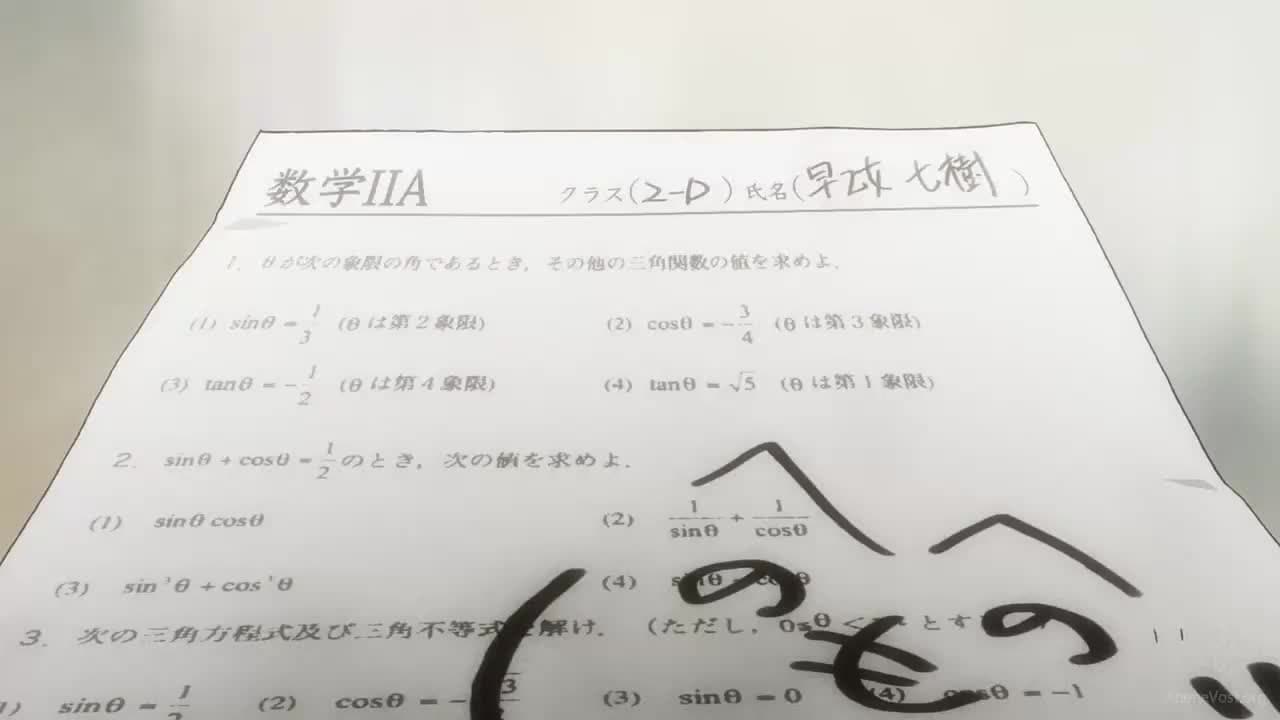 数学IIA クラス(2-D) 氏名(早坂 七樹)
1. θが次の象限の角であるとき, その他の三角関数の値を求めよ.
(1) sinθ = 1/3 (θは第2象限) (2) cosθ = -3/4 (θは第3象限)
(3) tanθ = -1/2 (θは第4象限) (4) tanθ = √5 (θは第1象限)
2. sinθ + cosθ = 1/2 のとき, 次の値を求めよ.
(1) sinθ cosθ (2) 1/sinθ + 1/cosθ
(3) sin³θ + cos³θ (4) sinθ - cosθ
3. 次の三角方程式及び三角不等式を解け. (ただし,
1) sinθ = 1/2 (2) cosθ = - (3) sinθ = 0 (4) cosθ = -1
へ へ
の も の